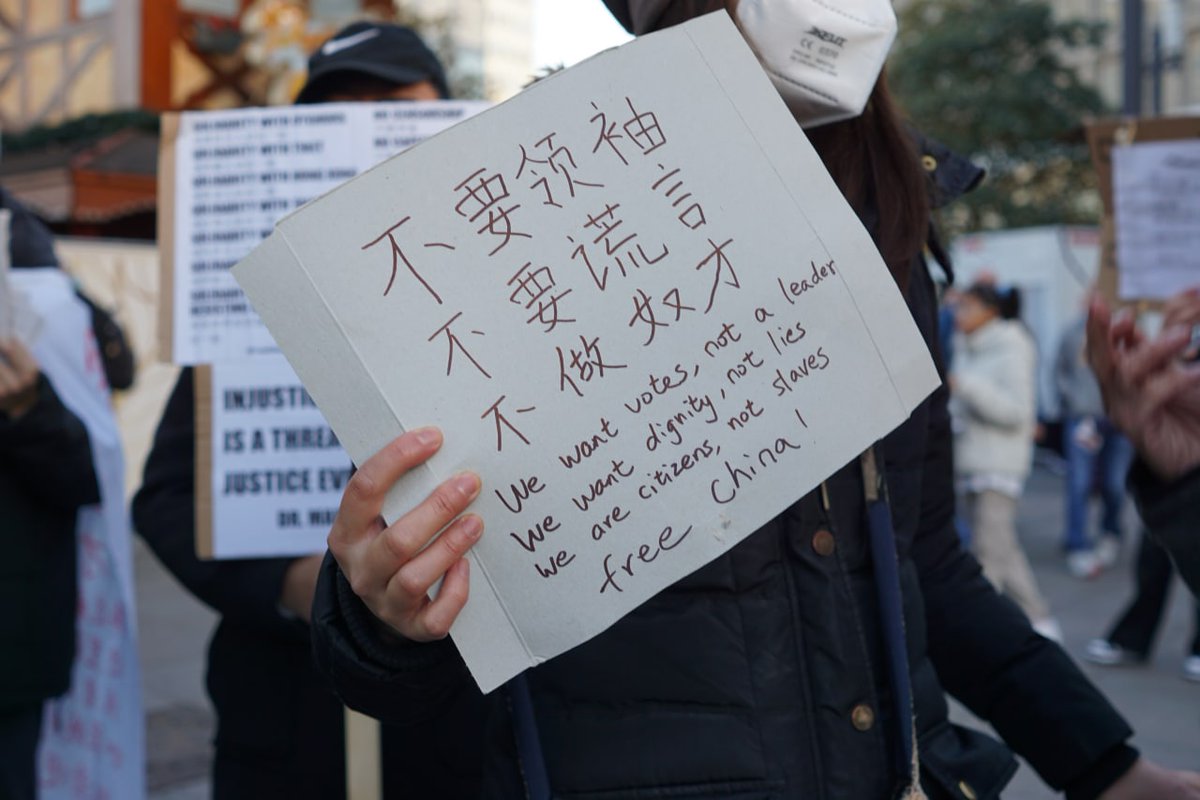 不要领袖
不要谎言
不做奴才
We want votes, not a leader
We want dignity, not lies
We are citizens, not slaves
free China!
SOLIDARITY WITH
SOLIDARITY WITH TIBET
SOLIDARITY WITH HONG KONG
SOLIDARITY WITH
SOLIDARITY WITH
SOLIDARITY WITH
SOLIDARITY WITH
INJUSTI
IS A THREA
JUSTICE EV
DR. MA